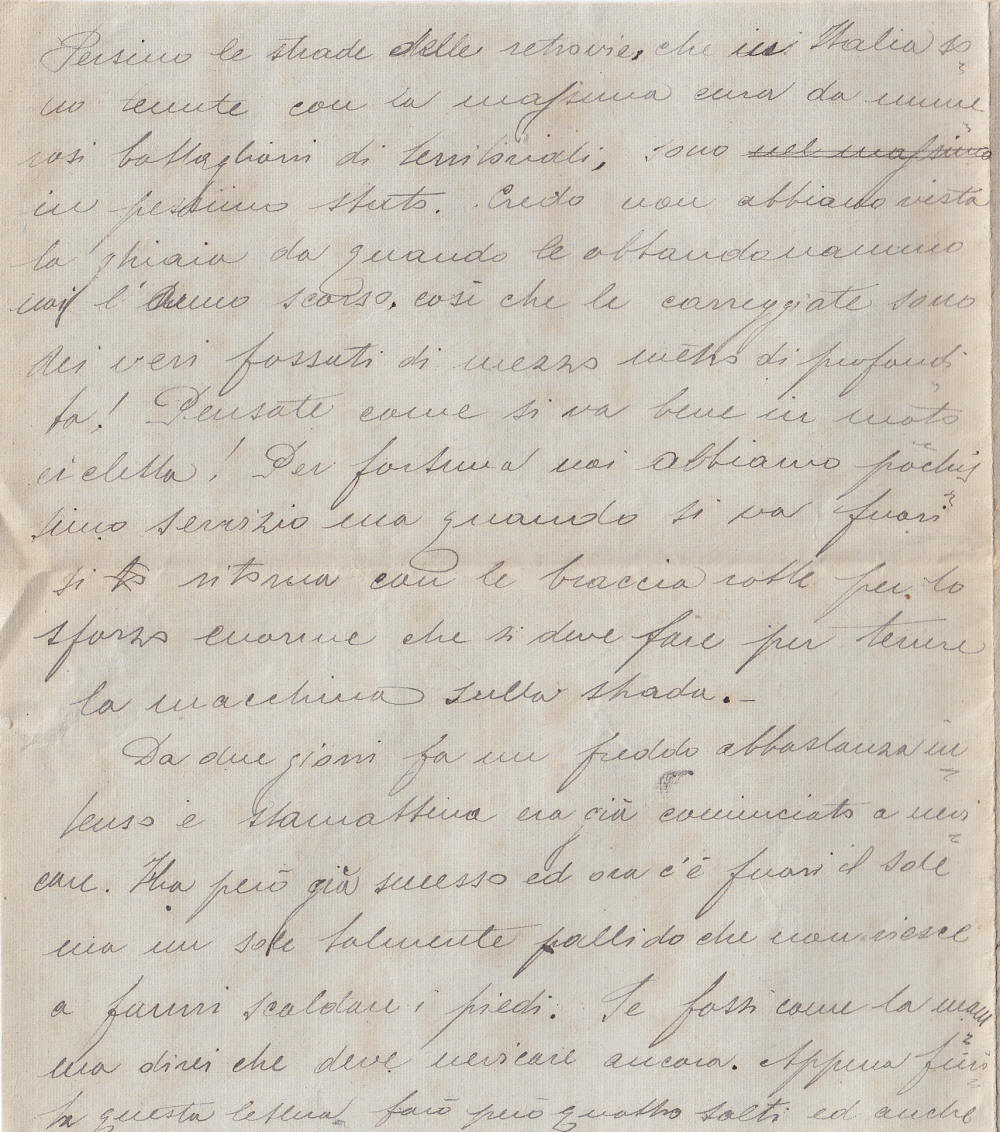 Persino le strade delle retrovie, che in Italia so
no tenute con la massima cura da nume
rosi battaglioni di territoriali, sono nel massimo
in pessimo stato. Credo non abbiano vista
la ghiaia da quando le abbandonammo
noi l'anno scorso, così che le carreggiate sono
dei veri fossati di mezzo metro di profondi
tà! Pensate come si va bene in moto
cicletta! Per fortuna noi abbiamo pochis
simo servizio ma quando si va fuori
si ritorna con le braccia rotte per lo
sforzo enorme che si deve fare per tenere
la macchina sulla strada. –
Da due giorni fa un freddo abbastanza in
tenso e stamattina era già cominciato a nevi
care. Ha però già smesso ed ora c'è fuori il sole
ma un sole talmente pallido che non riesce
a farmi scaldare i piedi. Se fossi come la mam
ma direi che deve nevicare ancora. Appena fini
ta questa lettera farò però quattro salti ed anche